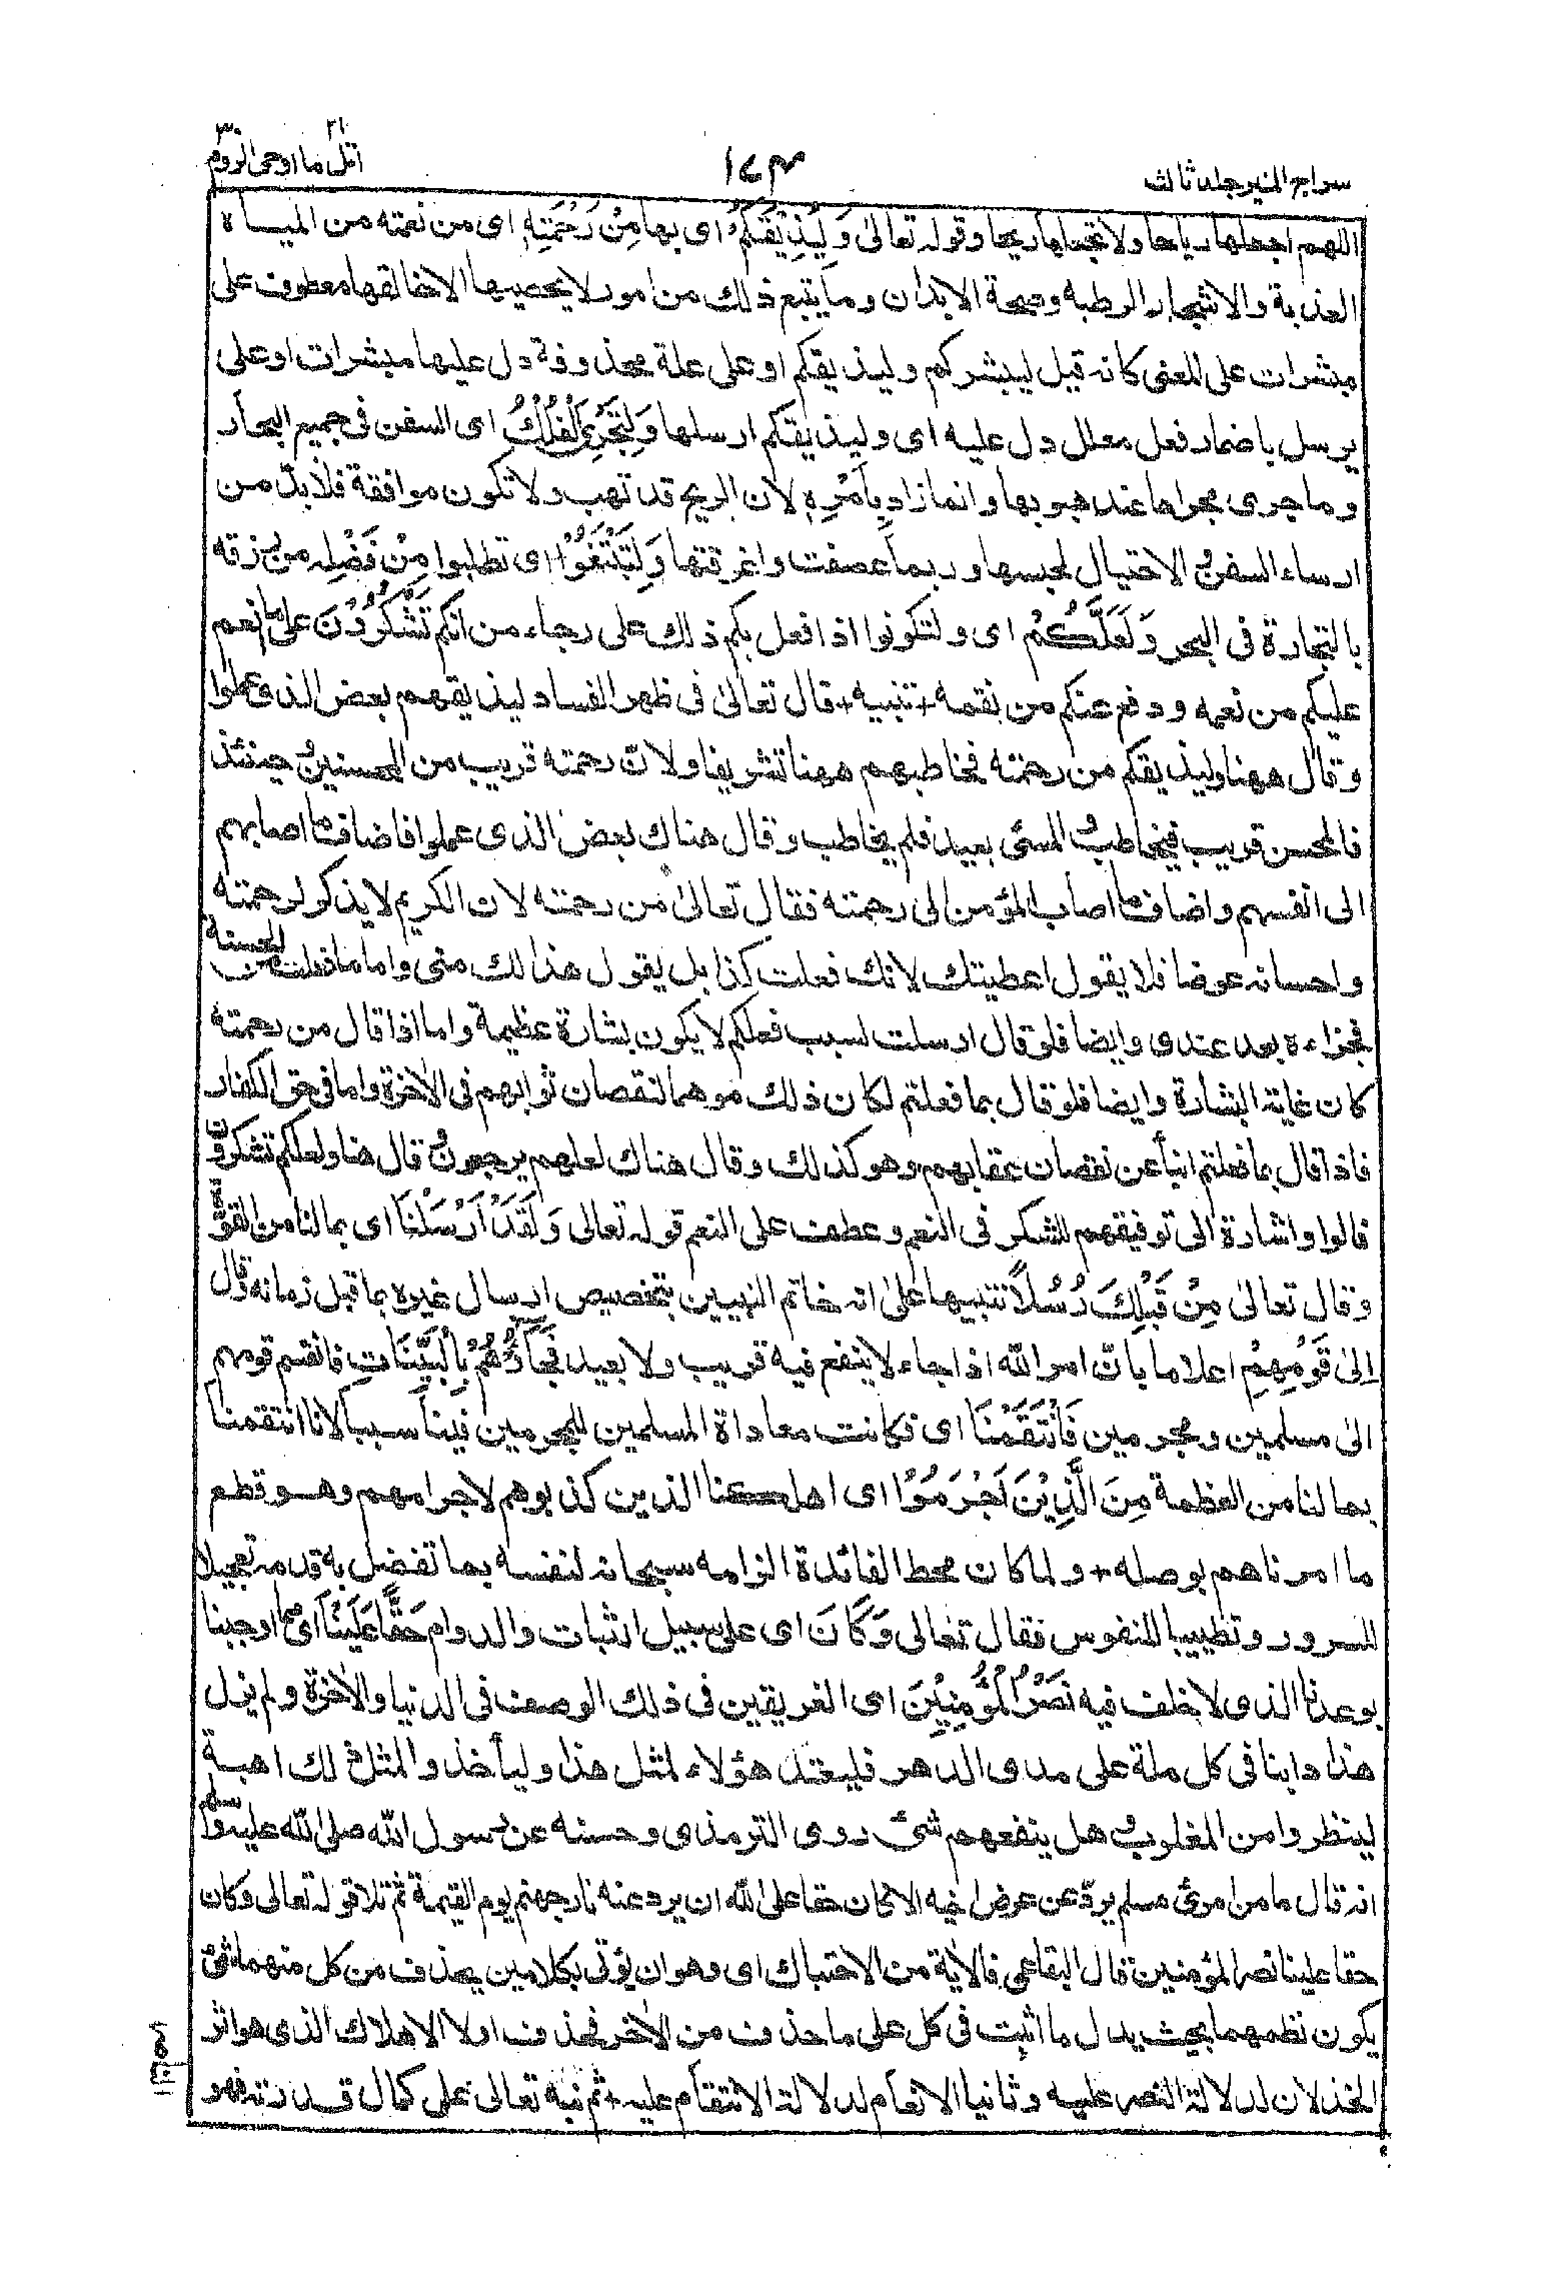 سراج المنیر جلد ثالث
١٧٣
اتل ما اوحی ٢١ الروم ٣٠
اللهم اجعلها ریاحا ولا تجعلها ریحا وقوله تعالیٰ وَلِیُذِیْقَکُمْ ای بها مِنْ رَحْمَتِهٖ ای من نعمته من المیاه
العذبة والاشجار الرطبه وصحة الابدان وما یتبع ذلك من امور لا یحصیها الا خالقها معطوف علی
مبشرات علی المعنی کانه قیل لیبشرکم ولیذیقکم او علی علة محذوفة دل علیها مبشرات او علی
یرسل باضمار فعل معلل دل علیه ای ولیذیقکم ارسلها وَلِتَجْرِیَ الْفُلْكُ ای السفن فی جمیع البحار
وما جری مجراها عند هبوبها وانما زاد بِاَمْرِهٖ لان الریح قد تهب ولا تکون موافقة فلا بدّ من
ارساء السفن و الاحتیال لحبسها وربما عصفت واغرقتها وَلِتَبْتَغُوْا ای تطلبوا مِنْ فَضْلِهٖ من رزقه
بالتجارة فی البحر وَلَعَلَّکُمْ ای ولتکونوا اذا فعل بکم ذلك علی رجاء من انکم تَشْکُرُوْنَ علی ما انعم
علیکم من نعمه ودفع عنکم من نقمه + تنبیه + قال تعالیٰ فی ظهر الفساد لیذیقهم بعض الذی عملوا
وقال ههنا ولیذیقکم من رحمته فخاطبهم ههنا تشریفا ولانّ رحمته قریب من المحسنین و حینئذ
فالمحسن قریب فیخاطب و المسئ بعید فلم یخاطب وقال هناك بعض الذی عملوا فاضاف ما اصابهم
الی انفسهم واضاف ما اصاب المؤمن الی رحمته فقال تعالیٰ من رحمته لان الکریم لا یذکر لرحمته
واحسانه عوضا فلا یقول اعطیتك لانك فعلت کذا بل یقول هذا لك منی واما ما فعلت من الحسنة
فجزاءه بعد عندی وایضا فلو قال ارسلت لسبب فعلکم لا یکون بشارة عظیمة واما اذا قال من رحمته
کان غایة البشارة وایضا فلو قال بما فعلتم لکان ذلك موهما لنقصان ثوابهم فی الاٰخرة واما فی حق الکفار
فاذا قال بما فعلتم انبأ عن نقصان عقابهم وهو کذلك وقال هناك لعلهم یرجعون و قال هنا ولعلکم تشکرون
قالوا واشارة الی توفیقهم للشکر فی النعم وعطف علی النعم قوله تعالی وَلَقَدْ اَرْسَلْنَا ای بما لنا من القوّة
وقال تعالیٰ مِنْ قَبْلِكَ رُسُلًا تنبیها علیٰ انه خاتم النبیین بتخصیص ارسال غیره بما قبل زمانه وقال
اِلیٰ قَوْمِهِمْ اعلاما بانّ امر الله اذا جاء لا ینفع فیه قریب ولا بعید فَجَآءُوْهُمْ بِالْبَیِّنَاتِ فانقسم قومهم
الی مسلمین ومجرمین فَانْتَقَمْنَا ای فکانت معاداة المسلمین للمجرمین فینا سببا لانا انتقمنا
بما لنا من العظمة مِنَ الَّذِیْنَ اَجْرَمُوْا ای اهلکنا الذین کذبوهم لاجرامهم وهو قطع
ما امرناهم بوصله + ولما کان محط الفائدة الزامه سبحانه لنفسه بما تفضل به قدمه تعجیلا
للسرور وتطییبا للنفوس فقال تعالی وَکَانَ ای علی سبیل الثبات والدوام حَقًّا عَلَیْنَا ای مما اوجبنا
بوعدنا الذی لا خلف فیه نَصْرُ الْمُؤْمِنِیْنَ ای الفریقین فی ذلك الوصف فی الدنیا والاٰخرة ولم یزل
هذا دابنا فی کل ملة علی مدی الدهر فلیعتد هؤلاء لمثل هذا ولیأخذوا لمثل ذلك اهبة
لینظروا من المغلوب و هل ینفعهم شئ روی الترمذی وحسنه عن رسول الله صلی الله علیه وسلم
انه قال ما من امرئ مسلم یردّ عن عرض اخیه الا کان حقا علی الله ان یرد عنه نار جهنم یوم القیٰمة ثم تلا قوله تعالی وکان
حقا علینا نصر المؤمنین قال البقاعی فالاٰیة من الاحتباك ای وهو ان یؤتی بکلامین یحذف من کل منهما شئ
یکون نظمهما بحیث یدل ما اثبت فی کل علی ما حذف من الاٰخر فحذف اولا الاهلاك الذی هو اثر
الخذلان لدلالة النصر علیه وثانیا الانعام لدلالة الانتقام علیه + ثم نبه تعالی علی کمال قدرته فهو